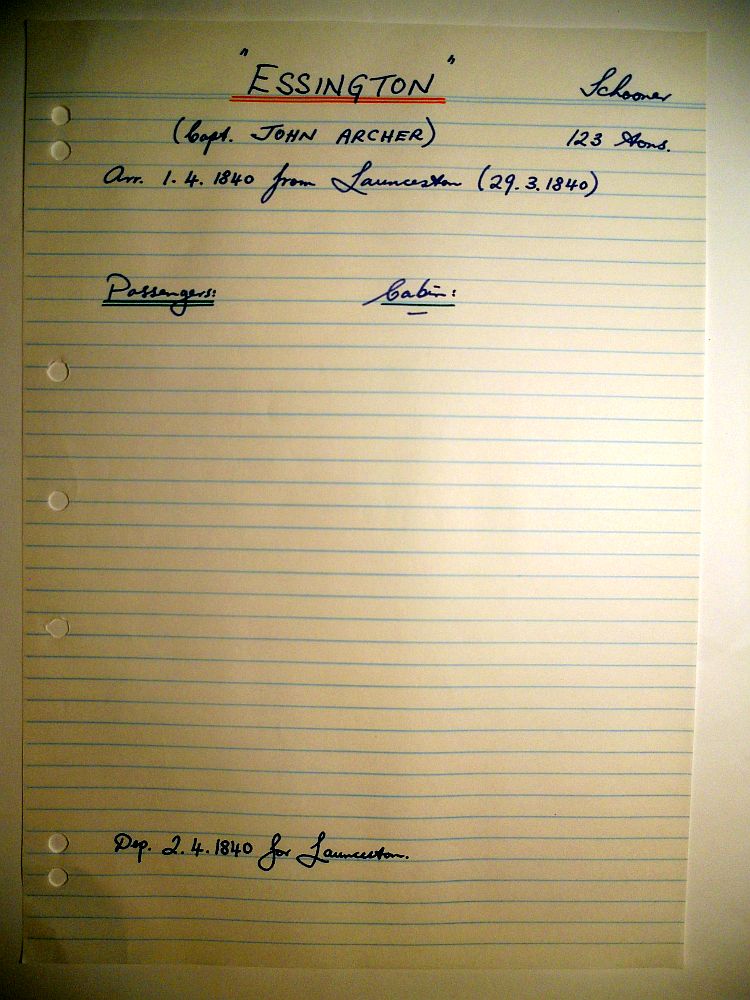 "ESSINGTON" Schooner
(Capt. JOHN ARCHER) 123 tons.
Arr. 1.4.1840 from Launceston (29.3.1840)
Passengers: Cabin:
Dep. 2.4.1840 for Launceston.